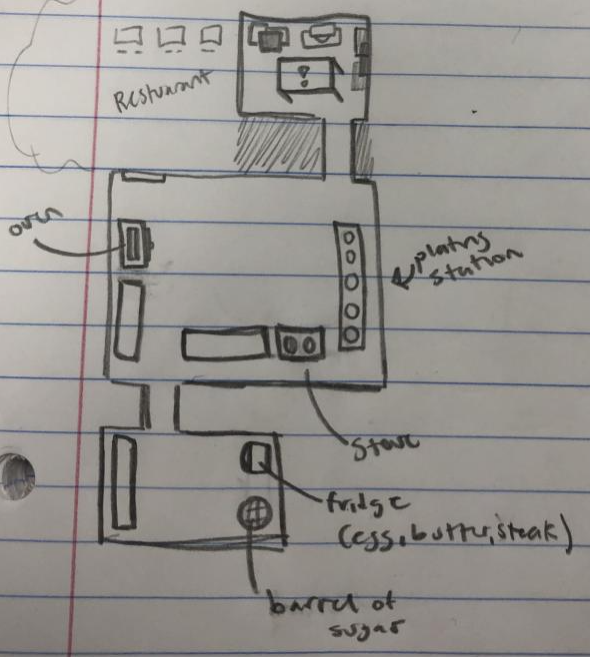 Restuarant
!
oven
plating
station
stove
fridge
(egg, butter, steak)
barrel of
sugar